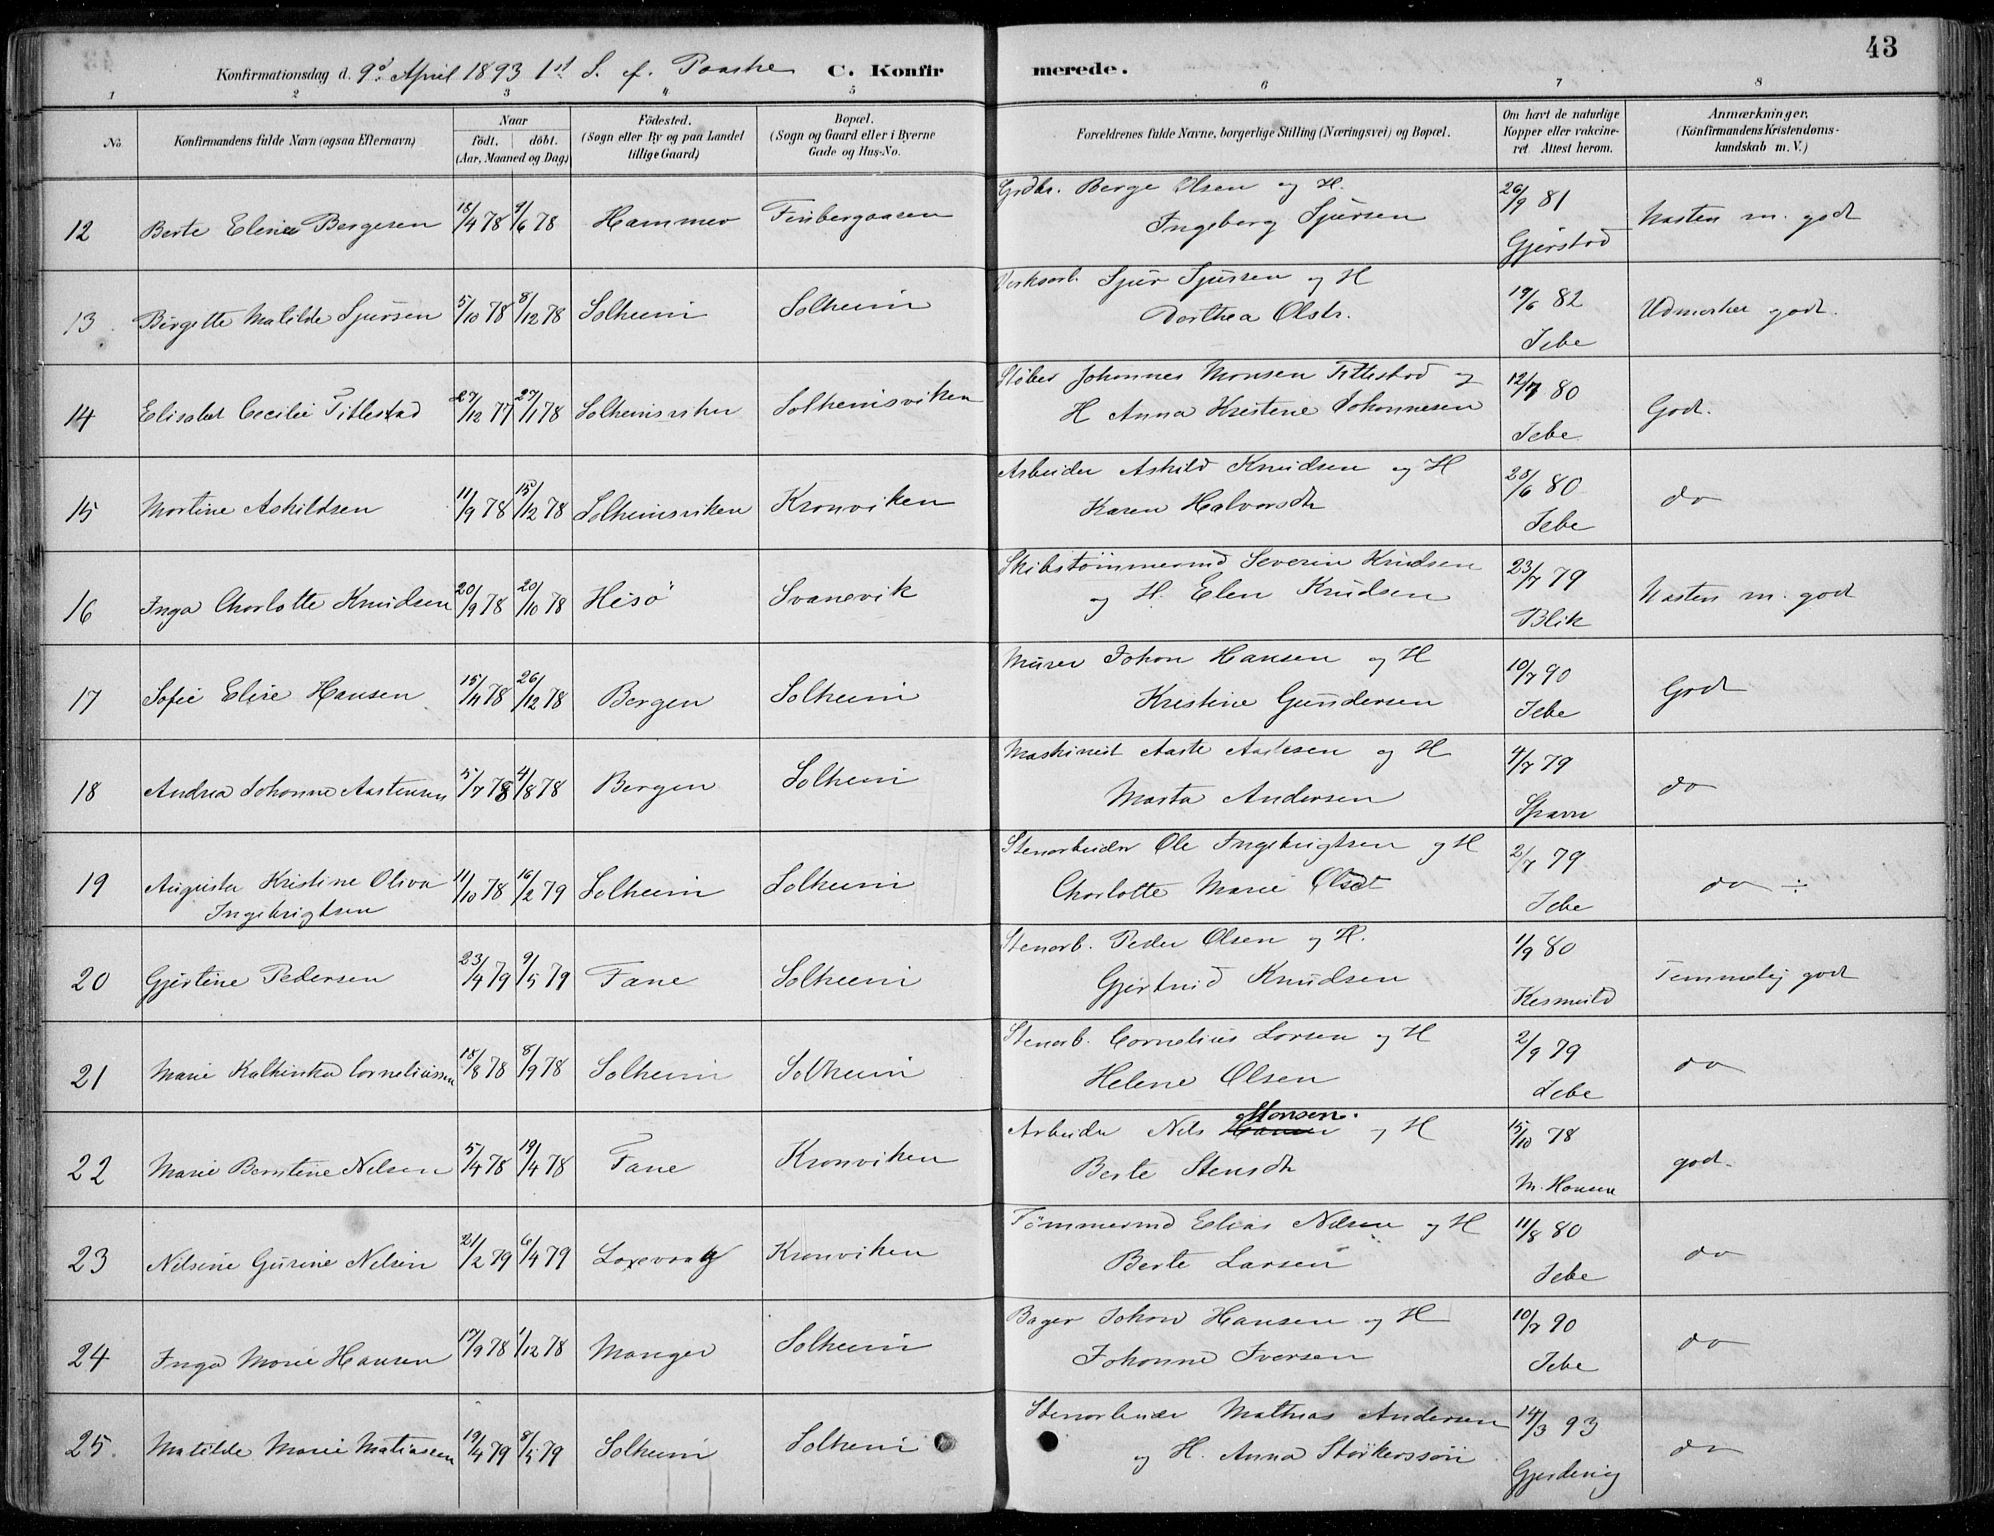 43
Konfirmationsdag d. 9d April 1893 1st S. e. Paaske C. Konfirmerede.
1 2 3 4 5 6 7 8
No. Konfirmandens fulde Navn (ogsaa Efternavn) Naar födt. döbt. (Aar, Maaned og Dag) Födested. (Sogn eller By og paa Landet tillige Gaard) Bopæl. (Sogn og Gaard eller i Byerne Gade og Hus-No. Forældrenes fulde Navne, borgerlige Stilling (Næringsvei) og Bopæl. Om havt de naturlige Kopper eller vakcineret Attest herom. Anmærkninger. (Konfirmandens Kristendomskundskab m. V.)
12 Berte Elene Bergesen 18/4 78 9/6 78 Hammer Finbergaasen Grdbr. Berge Olsen og H. Ingeborg Sjursen 26/9 81 Gjerstad Næsten m. godt
13 Birgitte Matilde Sjursen 5/10 78 8/12 78 Solheim Solheim Verksarb. Sjur Sjursen og H Dorthea Olsdr. 19/6 82 Jebe Udmerket godt.
14 Elisabet Cecilie Tittestad 27/12 77 27/1 78 Solheimsviken Solheimsviken Støber Johannes Monsen Tittestad og H Anna Kristine Johannesen 12/7 80 Jebe Godt.
15 Martine Askildsen 11/9 78 15/12 78 Solheimsviken Kronviken Arbeider Askild Knudsen og H Karen Halvorsdtr 28/6 80 Jebe do
16 Inga Charlotte Knudsen 20/9 78 20/10 78 Hisö Svanevik Skibstömmermd Severin Knudsen og H. Elen Knudsen 23/7 79 Blik Næsten m. godt
17 Sofie Elise Hansen 15/11 78 26/12 78 Bergen Solheim Murer Johan Hansen og H Kristine Gundersen 10/7 90 Jebe Godt
18 Andrea Johanne Aastensen 5/7 78 4/8 78 Bergen Solheim Maskinist Aaste Aastesen og H Marta Andersen 4/7 79 Sparre do
19 Augusta Kristine Oliva Ingebrigtsen 11/10 78 16/2 79 Solheim Solheim Stenarbeider Ole Ingebrigtsen og H Charlotte Marie Olsdt 2/7 79 Jebe do ÷
20 Gjertine Pedersen 23/4 79 9/5 79 Fane Solheim Stenarb. Peder Olsen og H. Gjertrud Knudsen 1/9 80 Temmelig godt
21 Marie Kathinka Corneliussen 18/8 78 8/9 78 Solheim Solheim Stenarb. Cornelius Larsen og H Helene Olsen 2/9 79 Jebe do
22 Marie Berntine Nilsen 5/4 78 19/4 78 Fane Kronviken Arbeider Nils Monsen og H Berte Stensdtr 15/10 78 M. Hansen godt.
23 Nilsine Gurine Nilsen 21/2 79 6/4 79 Laxevaag Kronviken Tömmermd Elias Nilsen og H Berte Larsen 11/8 80 Jebe do
24 Inga Marie Hansen 17/9 78 1/12 78 Manger Solheim Bager Johan Hansen og H Johanne Iversen 10/7 90 Jebe do
25. Matilde Marie Matiasen 19/4 79 8/5 79 Solheim Solheim Stenarbeider Mathias Andersen og H. Anna Storkerssön 14/3 93 do